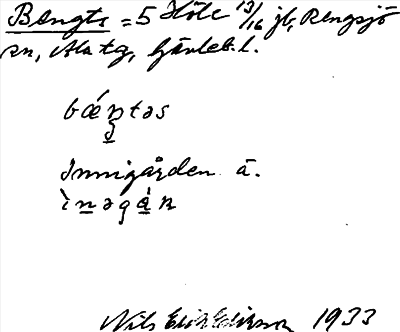 Bengts = 5 Höle 13/16 jb, Rengsjö
sn, Ala tg, Gävleb. l.
bǽn̥təs
Innigården ä.
ìnəgá̱n
Nils Erik Eriksson 1933